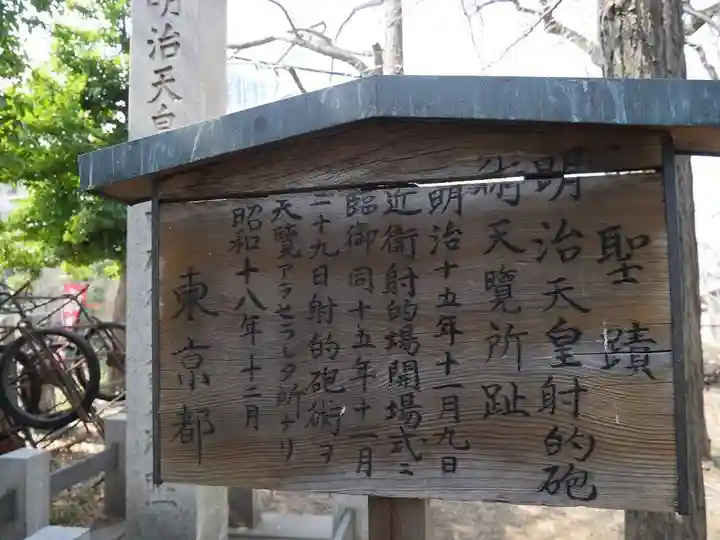 聖蹟
明治天皇射的砲
術天覧所趾
明治十五年十一月九日
近衛射的場開場式ニ
臨御同十五年十一月
二十九日射的砲術ヲ
天覧アラセラレタ所ナリ
昭和十八年十二月
東京都
明治天皇